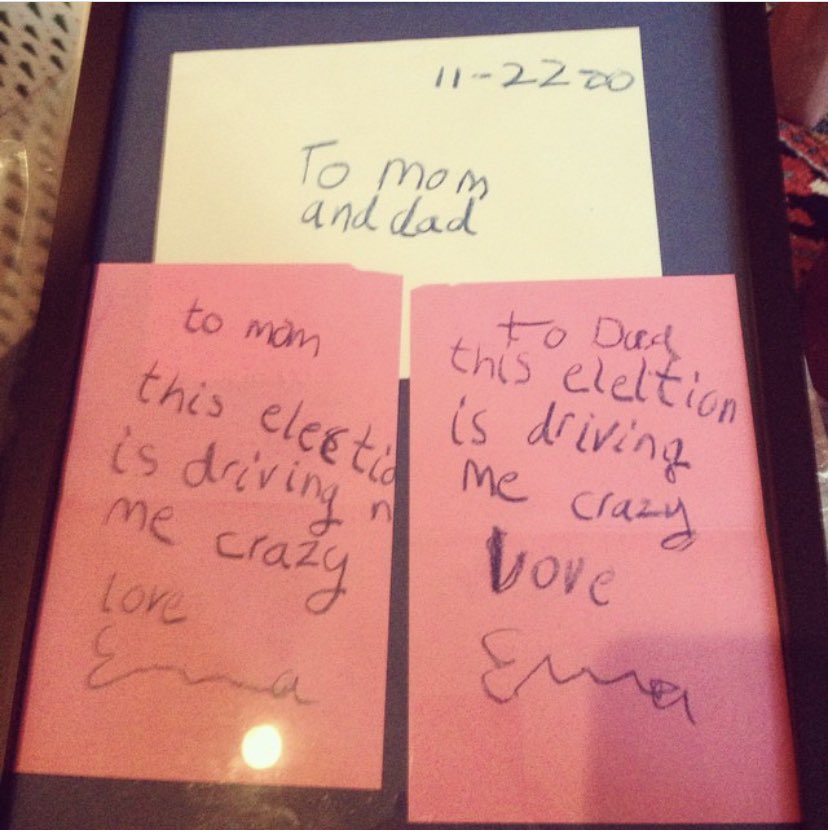 11-22-00
To mom
and dad
to mom
this electio
is driving n
me crazy
love
Emma
to Dad
this eleltion
is driving
me crazy
Love
Emma